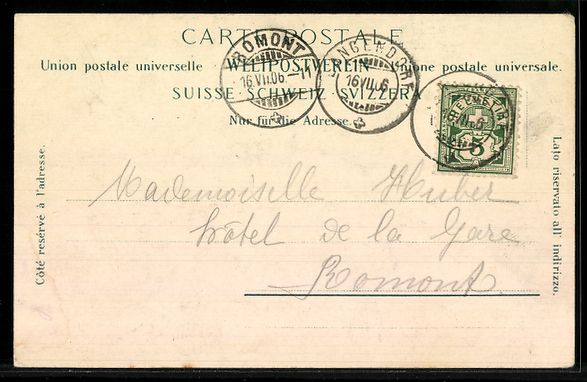 CARTE POSTALE
Union postale universelle. WELTPOSTVEREIN Unione postale universale.
SUISSE · SCHWEIZ · SVIZZERA
Nur für die Adresse.
Côté réservé à l'adresse.
Lato riservato all' indirizzo.
ROMONT
16 VII. 06. – 11
16 VII. 06
HELVETIA
5
Mademoiselle Huber
hôtel de la Gare
Romont